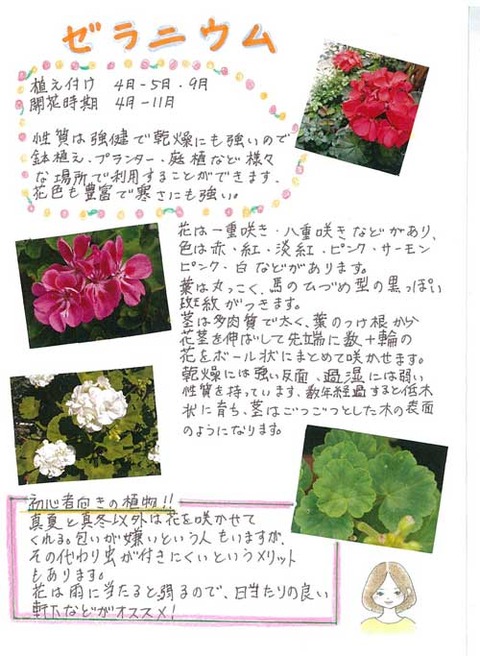 ゼラニウム
植え付け 4月-5月・9月
開花時期 4月-11月
性質は強健で乾燥にも強いので
鉢植え・プランター・庭植など様々
な場所で利用することができます。
花色も豊富で寒さにも強い。
花は一重咲き・八重咲きなどがあり、
色は赤・紅・淡紅・ピンク・サーモン
ピンク・白などがあります。
葉は丸っこく、馬のひづめ型の黒っぽい
斑紋がつきます。
茎は多肉質で太く、葉のつけ根から
花茎を伸ばして先端に数十輪の
花をボール状にまとめて咲かせます。
乾燥には強い反面、過湿には弱い
性質を持っています、数年経過すると低木
状に育ち、茎はごつごつとした木の表面
のようになります。
初心者向きの植物!!
真夏と真冬以外は花を咲かせて
くれる。匂いが嫌いという人もいますが、
その代わり虫が付きにくいというメリット
もあります。
花は雨に当たると弱るので、日当たりの良い
軒下などがオススメ!